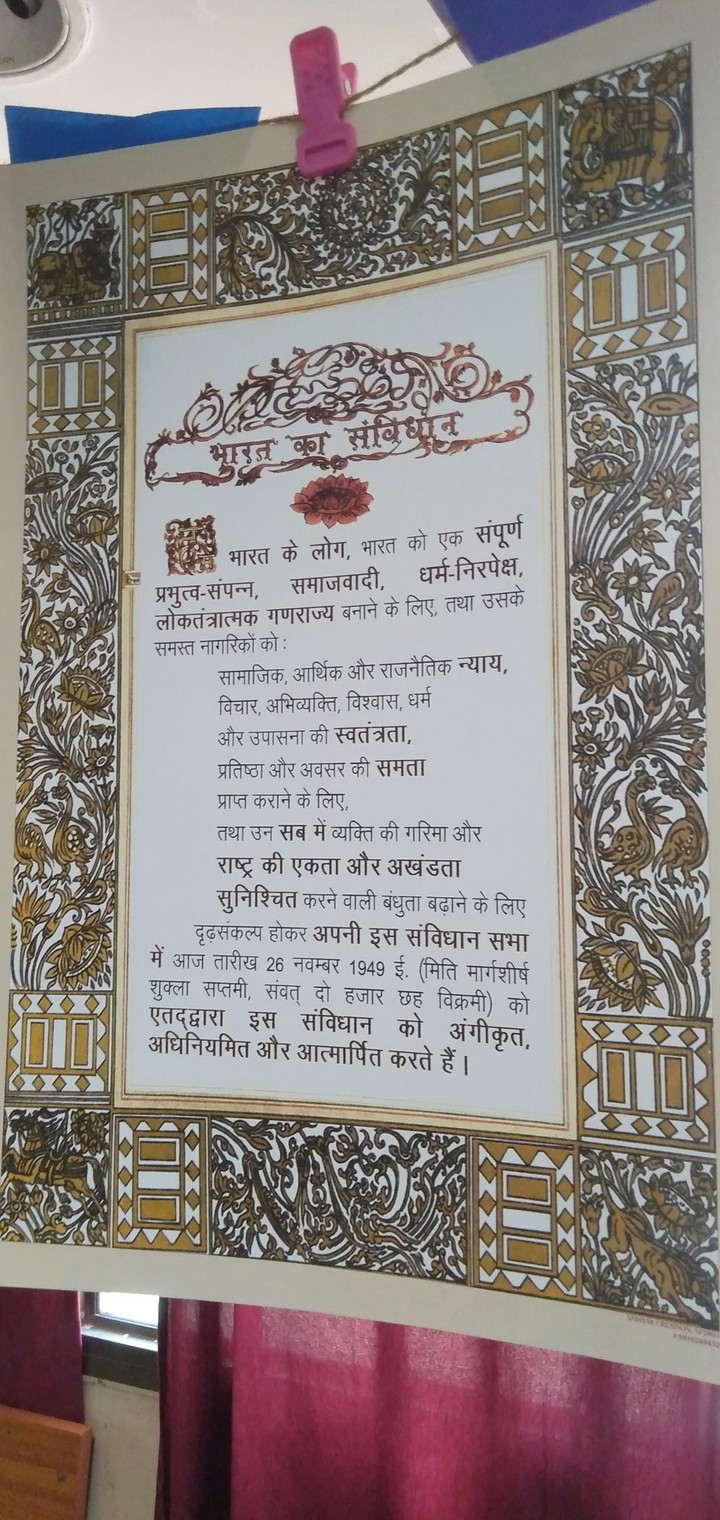 भारत का संविधान
हम भारत के लोग, भारत को एक संपूर्ण
प्रभुत्व-संपन्न, समाजवादी, धर्म-निरपेक्ष,
लोकतंत्रात्मक गणराज्य बनाने के लिए, तथा उसके
समस्त नागरिकों को :
सामाजिक, आर्थिक और राजनैतिक न्याय,
विचार, अभिव्यक्ति, विश्वास, धर्म
और उपासना की स्वतंत्रता,
प्रतिष्ठा और अवसर की समता
प्राप्त कराने के लिए,
तथा उन सब में व्यक्ति की गरिमा और
राष्ट्र की एकता और अखंडता
सुनिश्चित करने वाली बंधुता बढ़ाने के लिए
दृढ़संकल्प होकर अपनी इस संविधान सभा
में आज तारीख 26 नवम्बर 1949 ई. (मिति मार्गशीर्ष
शुक्ला सप्तमी, संवत् दो हजार छह विक्रमी) को
एतद्द्वारा इस संविधान को अंगीकृत,
अधिनियमित और आत्मार्पित करते हैं।